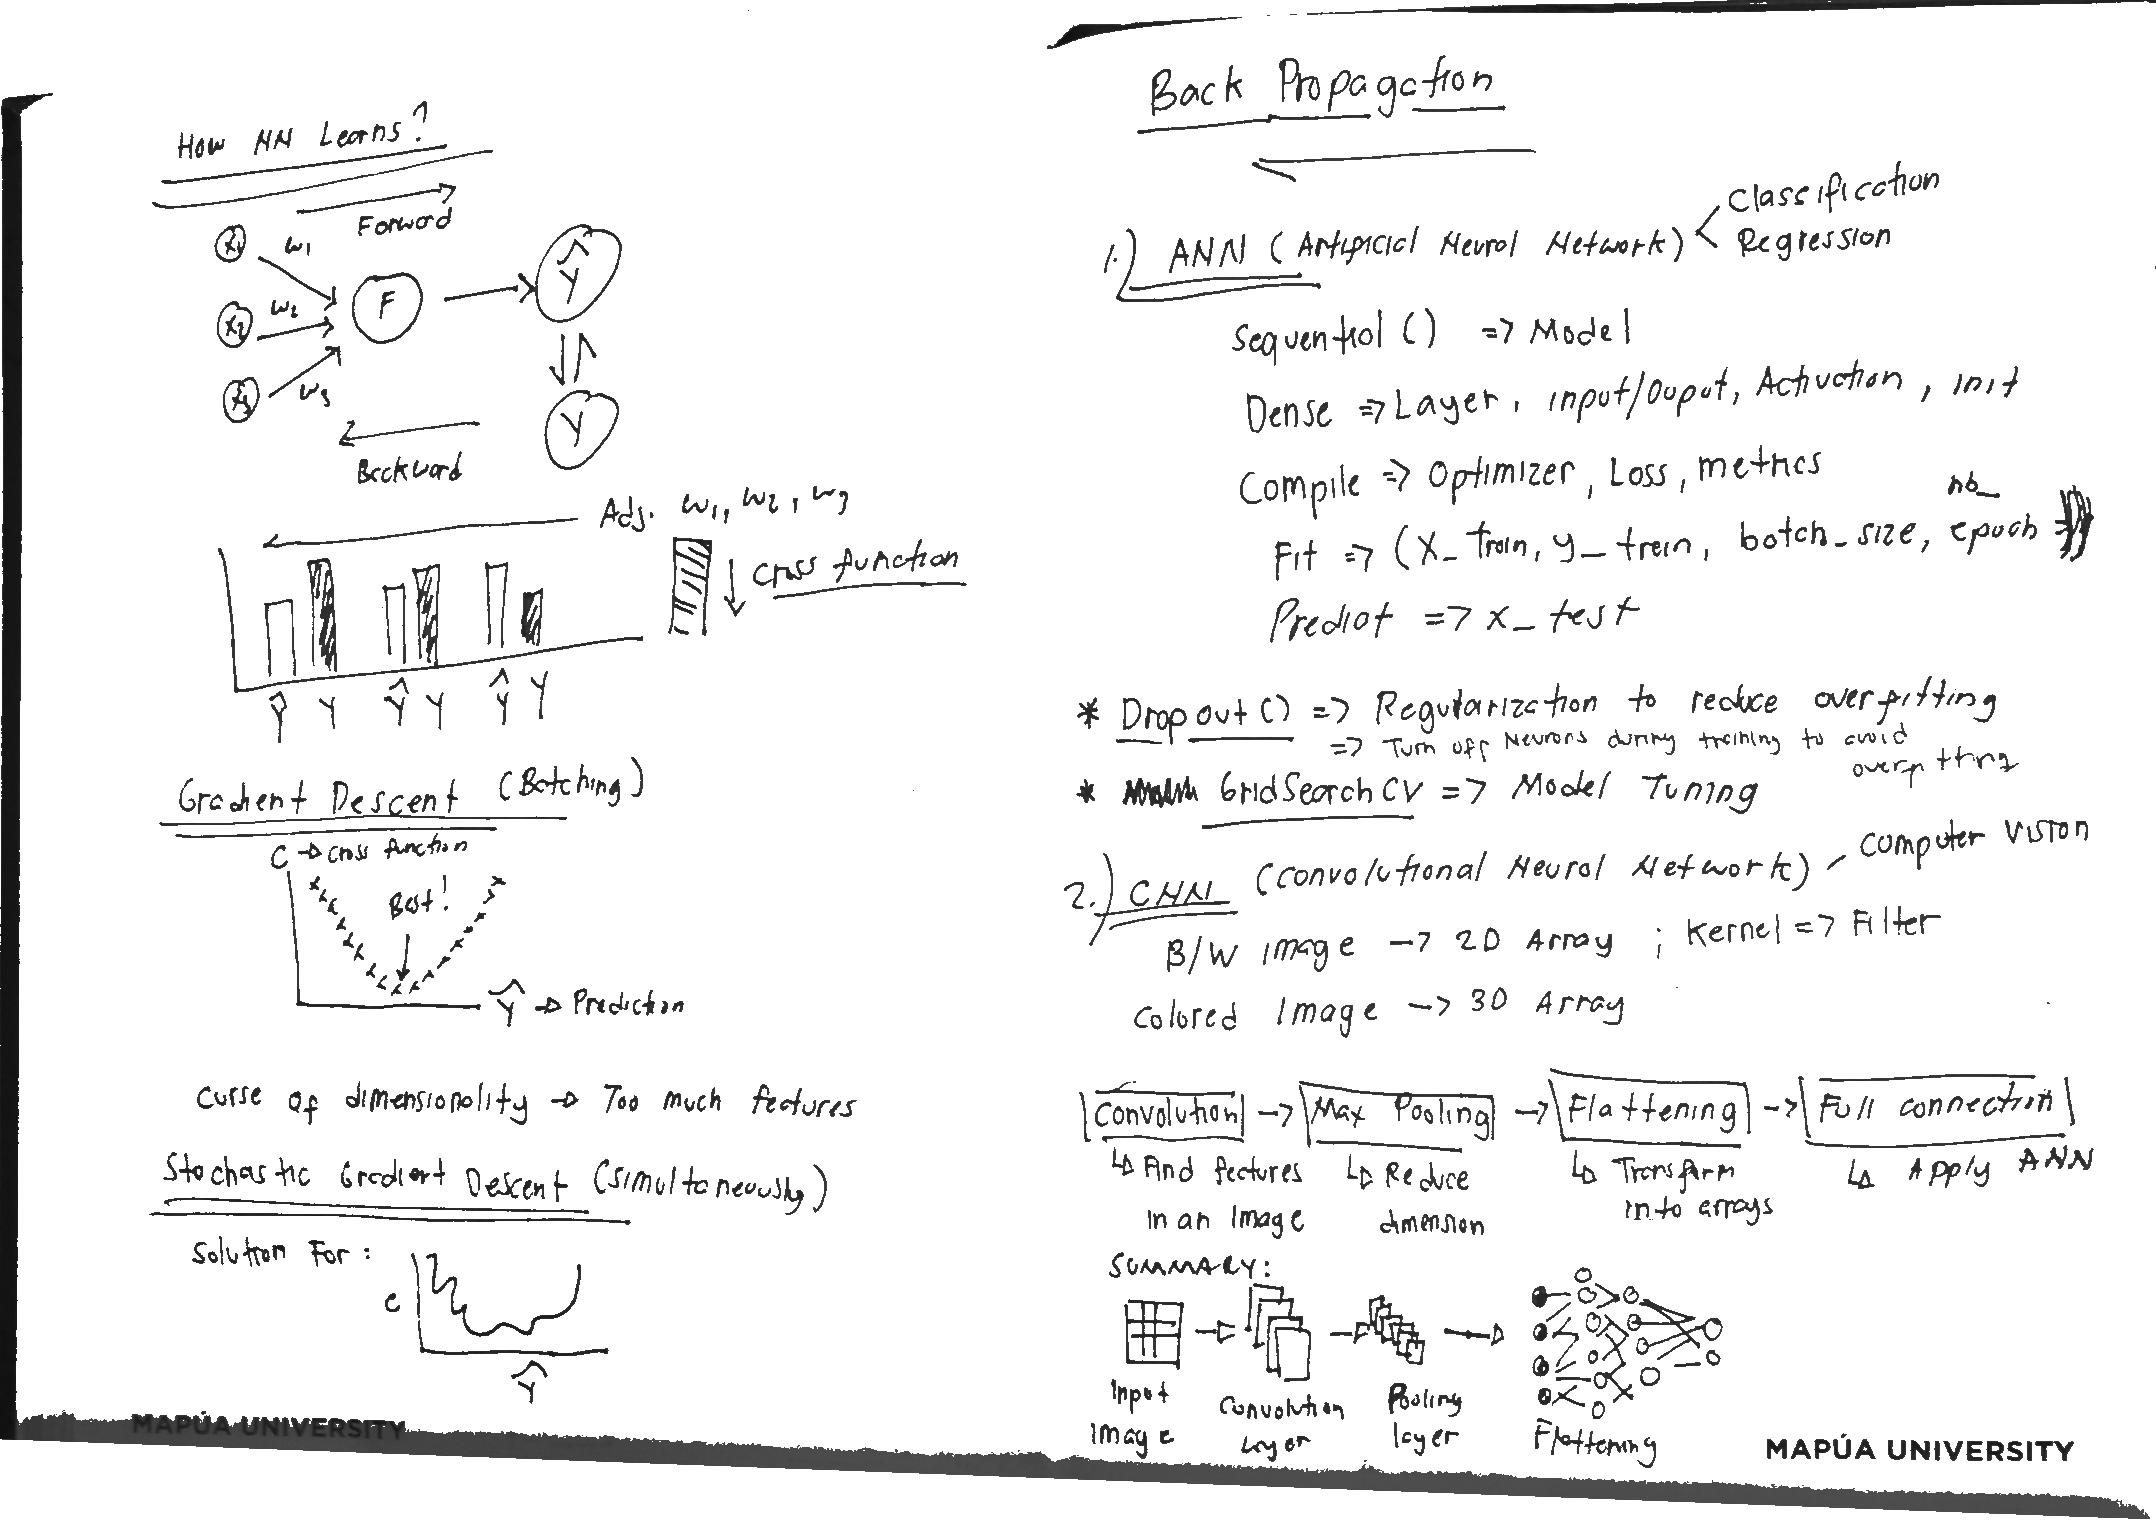 How NN Learns?
Forward
x1 w1
F
Ŷ
x2 w2
x3 w3
Y
Backward
Adj. w1, w2, w3
Cross function
Ŷ Y Ŷ Y Ŷ Y
Gradient Descent (Batching)
C → Cross function
Best!
Ŷ → Prediction
Curse of dimensionality → Too much features
Stochastic Gradient Descent (Simultaneously)
Solution For:
C
Ŷ
MAPÚA UNIVERSITY
Back Propagation
1.) ANN (Artificial Neural Network) < Classification
Regression
Sequential () => Model
Dense => Layer, input/Ouput, Activation, init
Compile => Optimizer, Loss, metrics
nb_
Fit => (X_train, y_train, batch_size, epoch
Predict => x_test
* Dropout () => Regularization to reduce overfitting
=> Turn off Neurons during training to avoid
overfitting
* GridSearchCV => Model Tuning
2.) CNN (Convolutional Neural Network), Computer Vision
B/W image -> 2D Array ; Kernel => Filter
Colored Image -> 3D Array
Convolution -> Max Pooling -> Flattening -> Full connection
↳ Find features
in an image
↳ Reduce
dimension
↳ Transform
into arrays
↳ Apply ANN
SUMMARY:
Input
image
Convolution
Layer
Pooling
layer
Flattening
MAPÚA UNIVERSITY